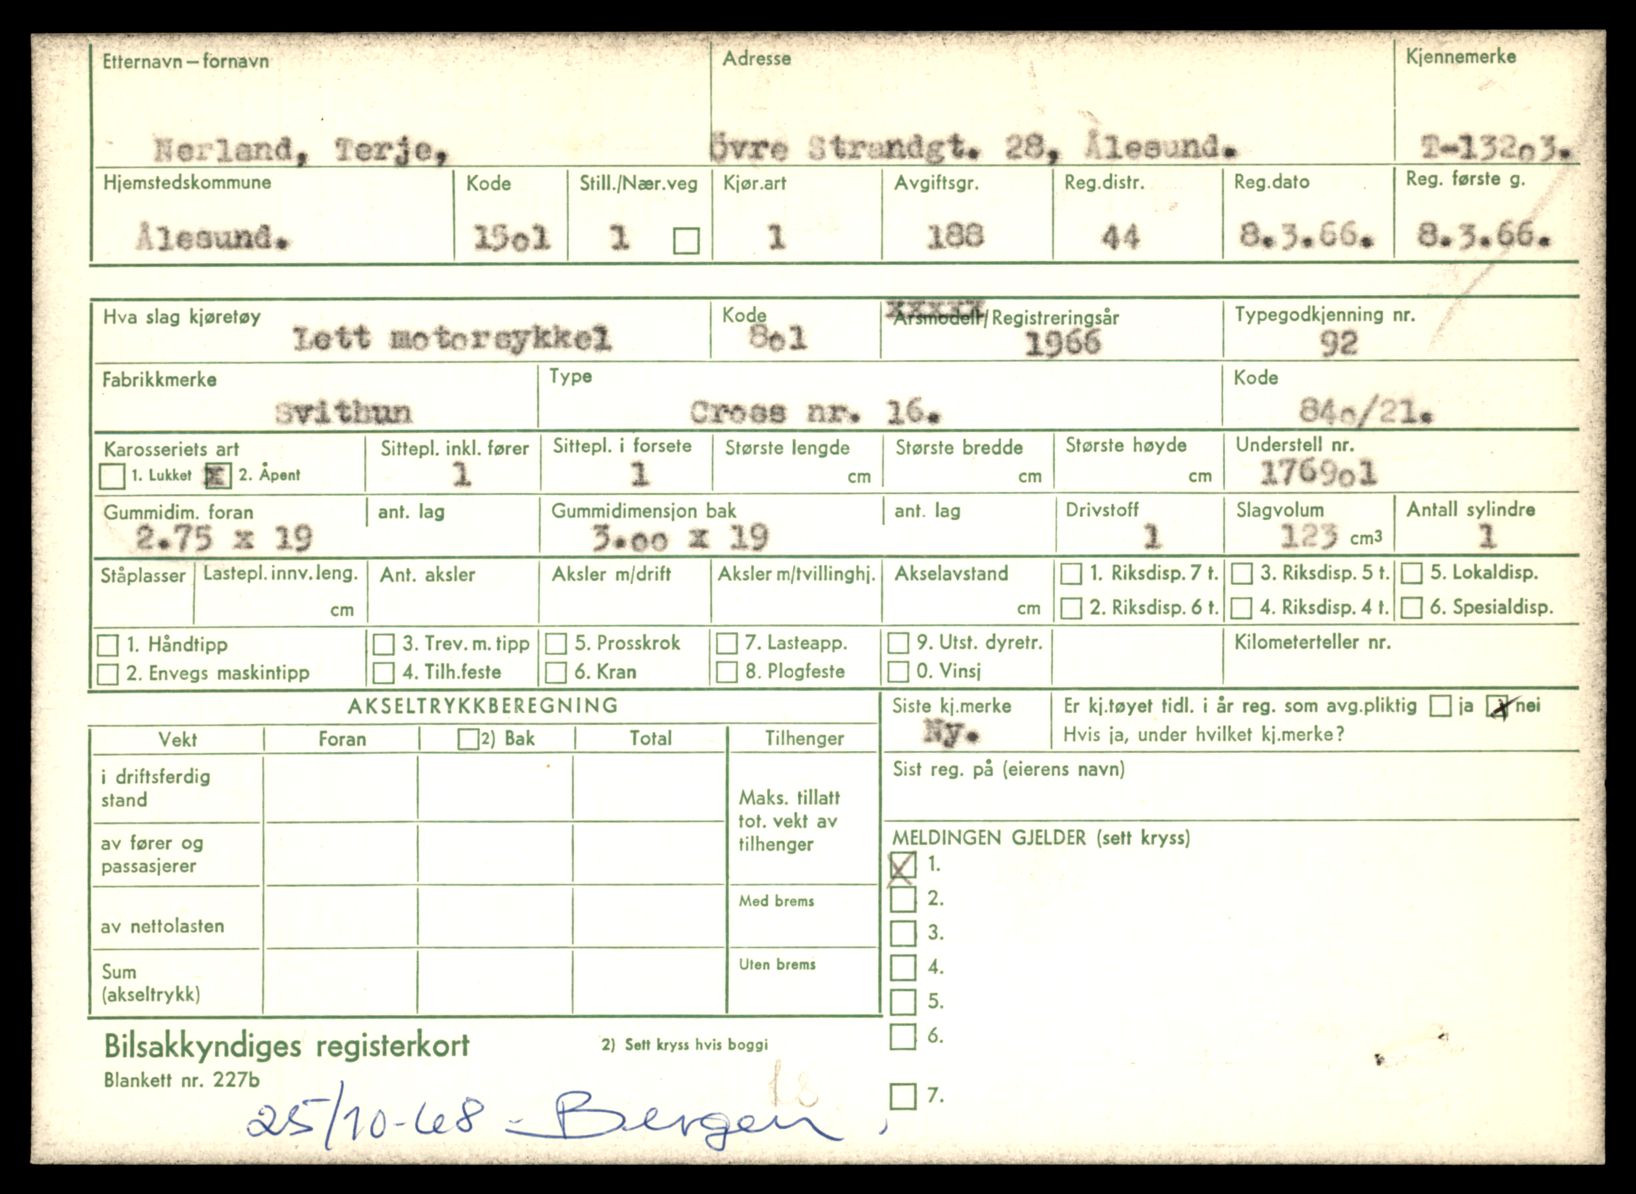 Etternavn – fornavn Adresse Kjennemerke
Nerland, Terje, Övre Strandgt. 28, Ålesund. T-13203.
Hjemstedskommune Kode Still./Nær.veg Kjør.art Avgiftsgr. Reg.distr. Reg.dato Reg. første g.
Ålesund. 1501 1 1 188 44 8.3.66. 8.3.66.
Hva slag kjøretøy Kode Årsmodell/Registreringsår Typegodkjenning nr.
Lett motorsykkel 801 1966 92
Fabrikkmerke Type Kode
Svithun Cross nr. 16. 840/21.
Karosseriets art Sittepl. inkl. fører Sittepl. i forsete Største lengde Største bredde Største høyde Understell nr.
1. Lukket x 2. Åpent 1 1 cm cm cm 176901
Gummidim. foran ant. lag Gummidimensjon bak ant. lag Drivstoff Slagvolum Antall sylindre
2.75 x 19 3.00 x 19 1 123 cm3 1
Ståplasser Lastepl. innv. leng. Ant. aksler Aksler m/drift Aksler m/tvillinghj. Akselavstand 1. Riksdisp. 7 t. 3. Riksdisp. 5 t. 5. Lokaldisp.
cm cm 2. Riksdisp. 6 t. 4. Riksdisp. 4 t. 6. Spesialdisp.
1. Håndtipp 3. Trev. m. tipp 5. Prosskrok 7. Lasteapp. 9. Utst. dyretr. Kilometerteller nr.
2. Envegs maskintipp 4. Tilh.feste 6. Kran 8. Plogfeste 0. Vinsj
AKSELTRYKKBEREGNING Siste kj.merke Er kj.tøyet tidl. i år reg. som avg.pliktig ja x nei
Ny. Hvis ja, under hvilket kj.merke?
Vekt Foran 2) Bak Total Tilhenger
Sist reg. på (eierens navn)
i driftsferdig
stand
Maks. tillatt
tot. vekt av
tilhenger
av fører og
passasjerer
MELDINGEN GJELDER (sett kryss)
x 1.
2.
3.
4.
5.
6.
7.
Med brems
av nettolasten
Uten brems
Sum
(akseltrykk)
Bilsakkyndiges registerkort 2) Sett kryss hvis boggi
Blankett nr. 227b
25/10-68 - Bergen.